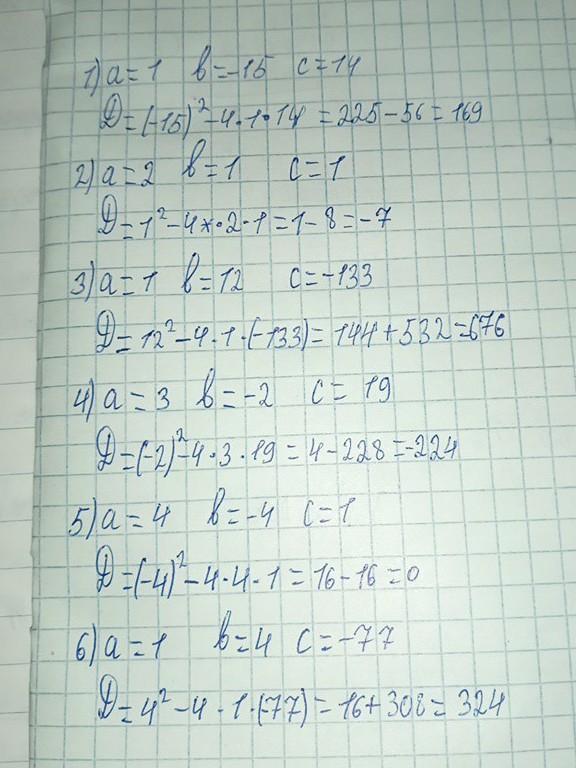 1) a=1 b=-15 c=14
D=(-15)²-4·1·14=225-56=169
2) a=2 b=1 c=1
D=1²-4·2·1=1-8=-7
3) a=1 b=12 c=-133
D=12²-4·1·(-133)=144+532=676
4) a=3 b=-2 c=19
D=(-2)²-4·3·19=4-228=-224
5) a=4 b=-4 c=1
D=(-4)²-4·4·1=16-16=0
6) a=1 b=4 c=-77
D=4²-4·1·(-77)=16+308=324